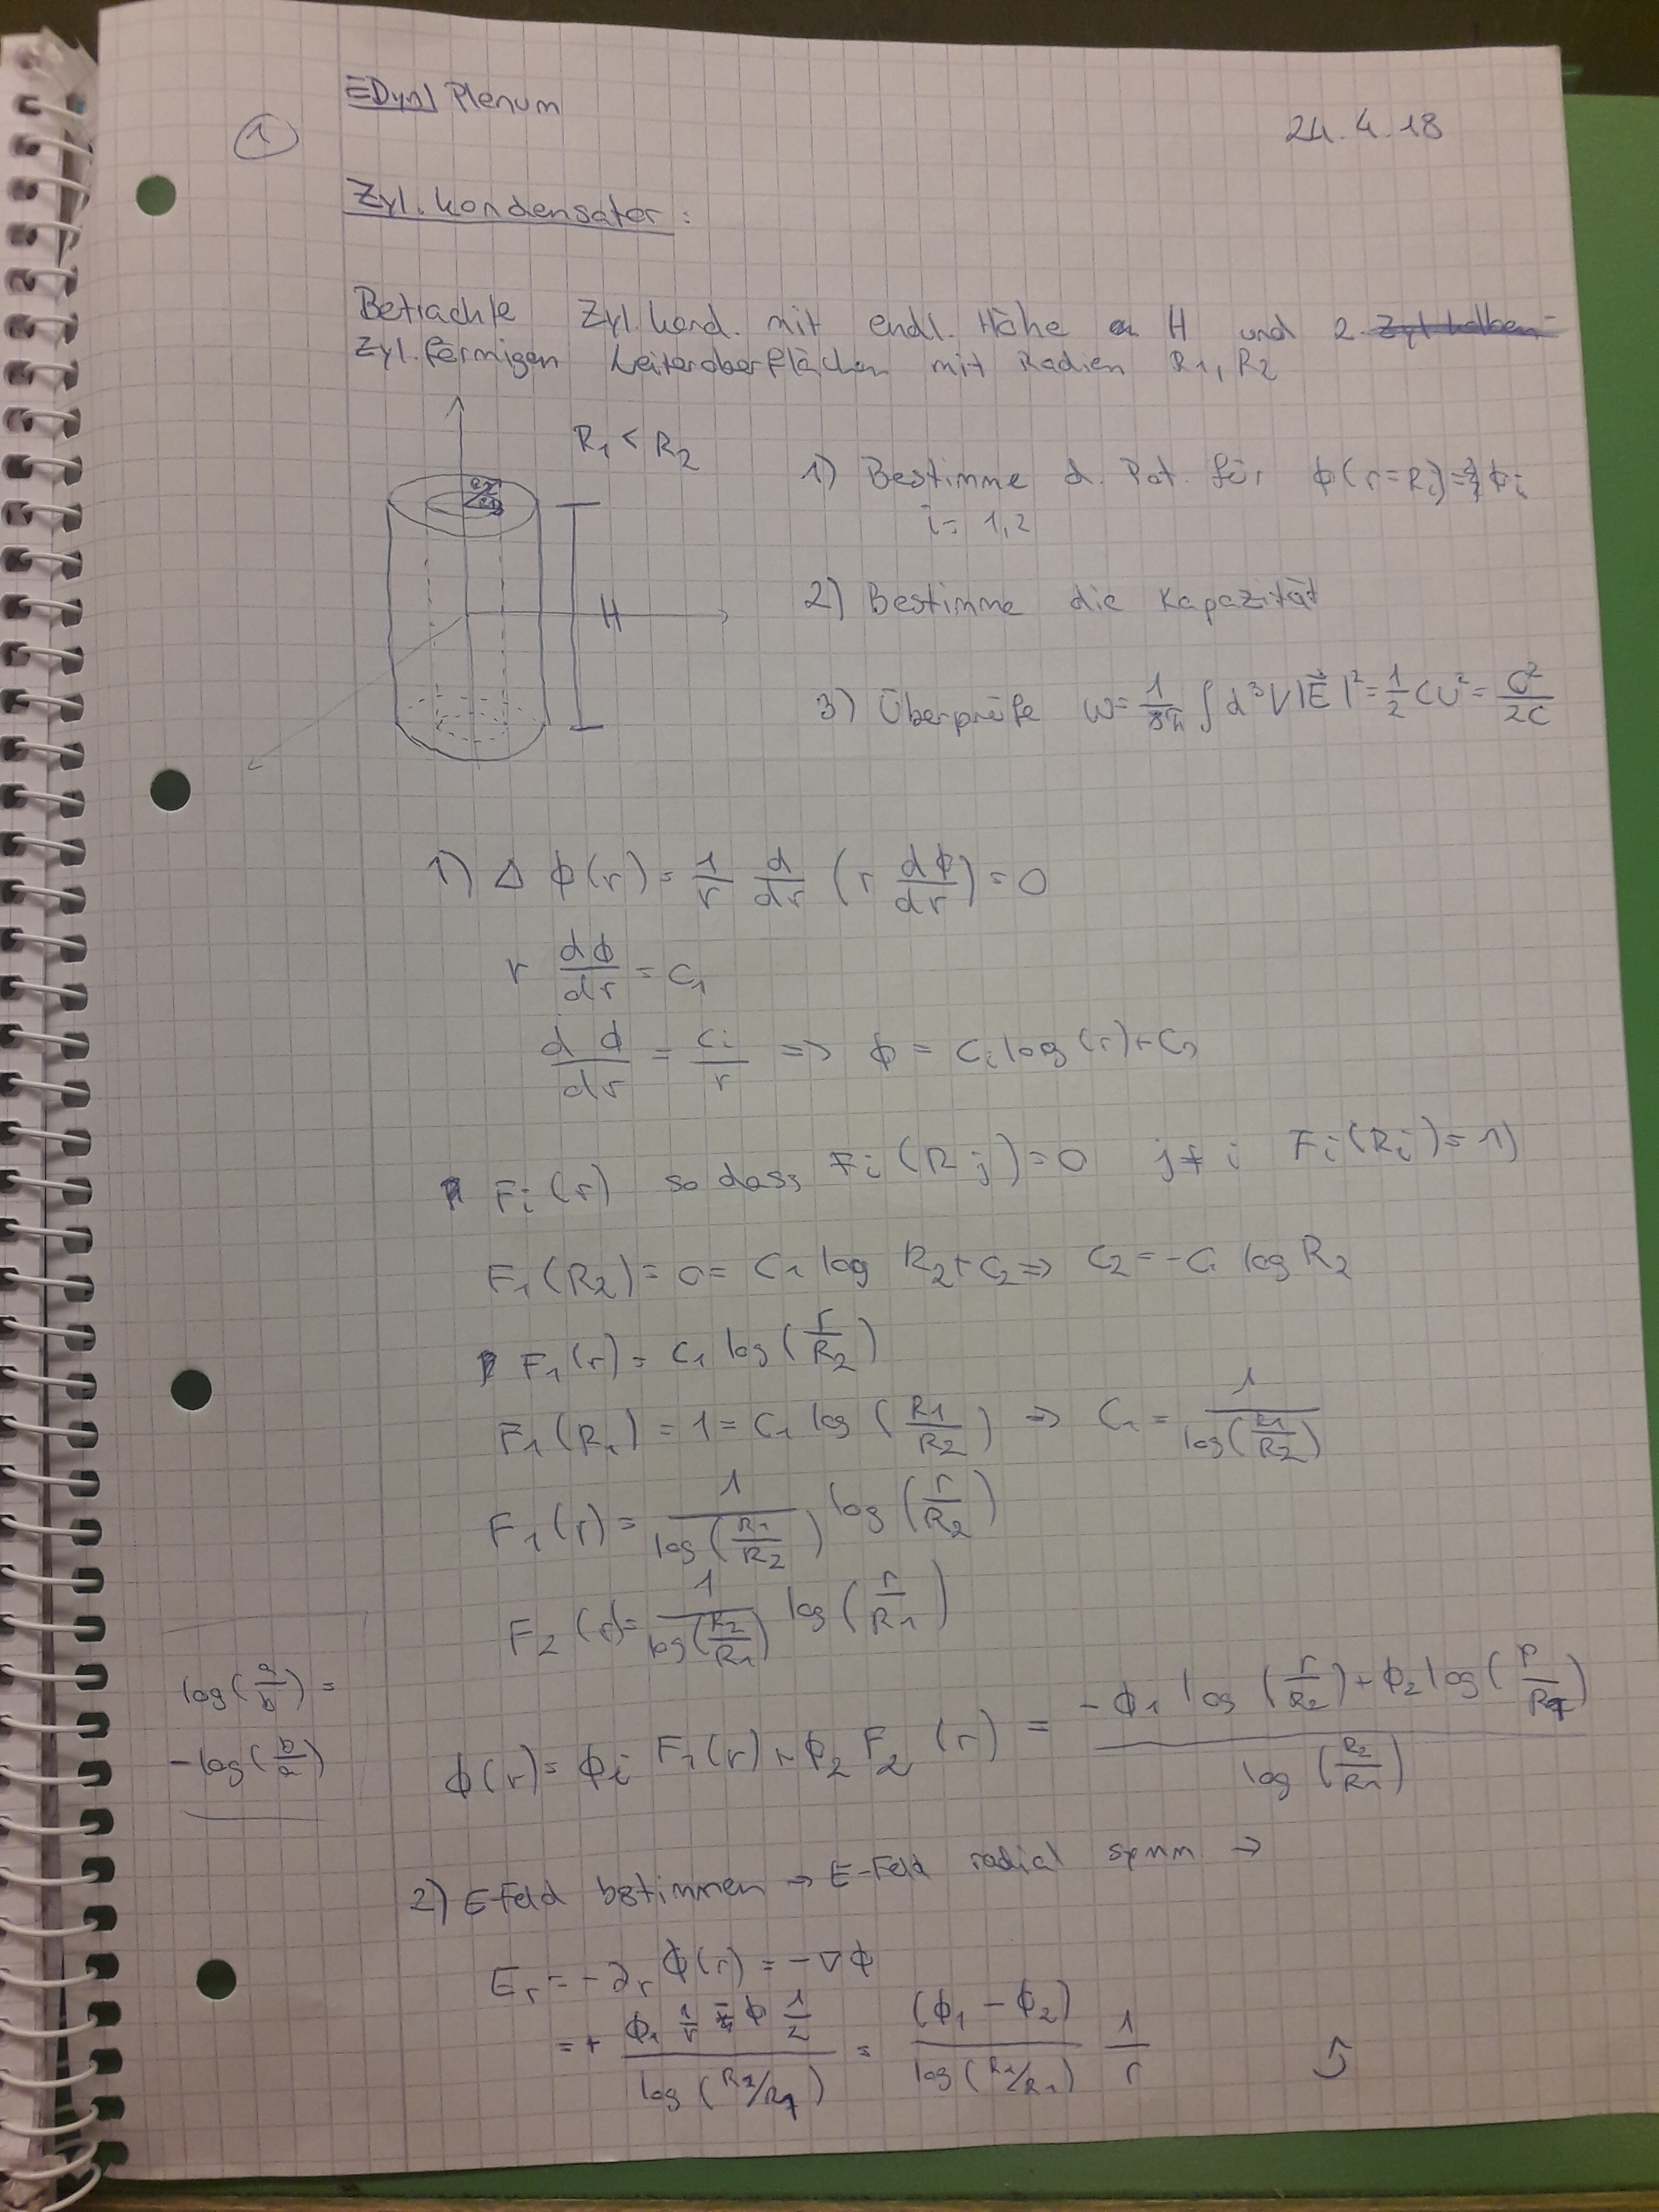 EDyn Plenum
24.4.18
1
Zyl. kondensator:
Betrachte Zyl. kond. mit endl. Höhe H und 2
Zyl. förmigen Leiteroberflächen mit Radien R₁, R₂
R₁ < R₂
1) Bestimme d. Pot. für ϕ(r=Rᵢ)=ϕᵢ
i = 1,2
H
2) Bestimme die Kapazität
3) Überprüfe W = 1/8π ∫d³V|E⃗|² = 1/2 CU² = Q²/2C
1) Δ ϕ(r) = 1/r d/dr (r dϕ/dr) = 0
r dϕ/dr = C₁
dϕ/dr = Cᵢ/r => ϕ = Cᵢ log(r)+C₂
Fᵢ(r) so dass Fᵢ(Rⱼ)=0 j≠i Fᵢ(Rᵢ)=1)
F₁(R₂) = 0 = C₁ log R₂+C₂ => C₂ = -C₁ log R₂
F₁(r) = C₁ log(r/R₂)
F₁(R₁) = 1 = C₁ log(R₁/R₂) => C₁ = 1/log(R₁/R₂)
F₁(r) = 1/log(R₁/R₂) log(r/R₂)
F₂(r) = 1/log(R₂/R₁) log(r/R₁)
log(a/b) =
-log(b/a)
ϕ(r) = ϕᵢ F₁(r) + ϕ₂ F₂(r) = (-ϕ₁ log(r/R₂) + ϕ₂ log(r/R₁))/log(R₂/R₁)
2) E-Feld bestimmen → E-Feld radial symm →
Eᵣ = -∂ᵣ ϕ(r) = -∇ϕ
= (ϕ₁ - ϕ₂)/log(R₂/R₁) 1/r